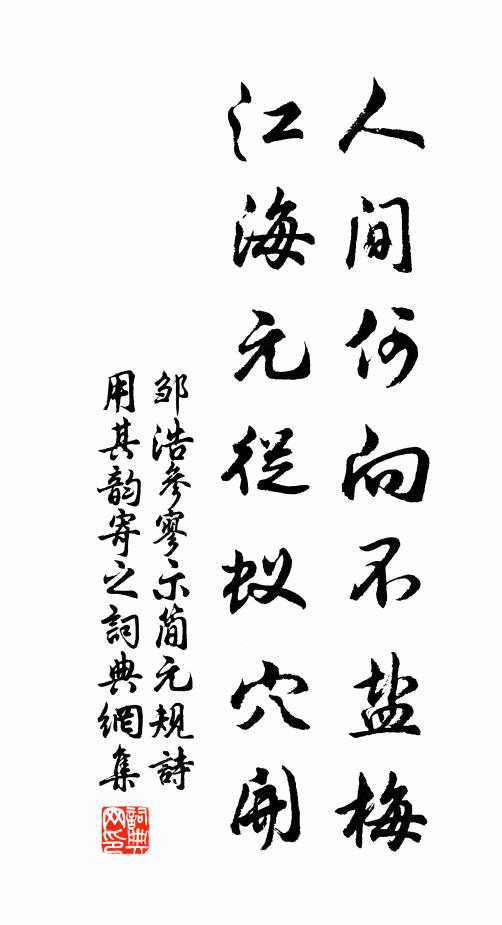 人间何向不盐梅
江海元从蚁穴开
邹浩参寥示简元规詩
用其韵寄之詞典網集
詞典网印